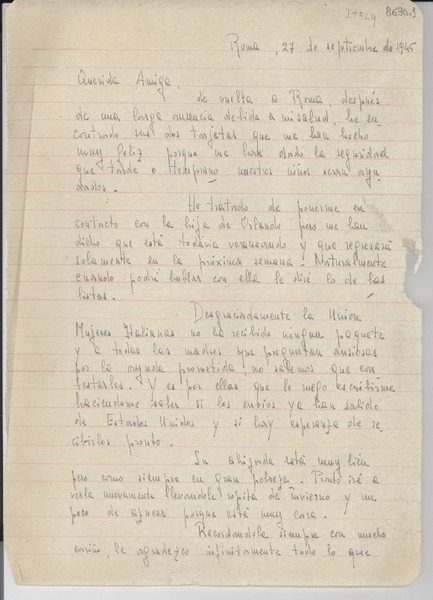 Italy 8630.1
Roma, 27 de septiembre de 1945
Querida Amiga,
de vuelta a Roma, después
de una larga ausencia debida a mi salud, he en
contrado sus dos tarjetas que me han hecho
muy feliz porque me han dado la seguridad
que tarde o temprano nuestros niños seran ayu
dados.
He tratado de ponerme en
contacto con la hija de Orlando pero me han
dicho que está todavia veraneando y que regresará
solamente en la próxima semana. Naturalmente
cuando podrá hablar con ella le diré lo de las
listas.
Desgraciadamente la Union
Mujeres Italianas no ha recibido ningun paquete
y a todas las madres que preguntan ansiosas
por la ayuda prometida no sabemos que con
testarles. Y es por ellas que le ruego escribirme
haciendome saber si los envios ya han salido
de Estados Unidos y si hay esperanza de re
cibirlos pronto.
Su ahijada está muy bien
pero como siempre en gran pobreza. Pronto iré a
verla nuevamente llevandole ropita de invierno y un
poco de azucar porque está muy cara.
Recordandola siempre con mucho
cariño, le agradezco infinitamente todo lo que